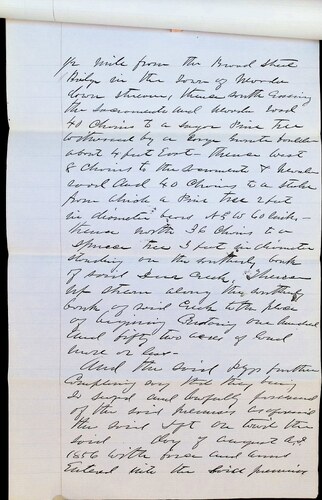 mile from the Broad Street
Bridge in the Town of Nevada
down stream, thence south crossing
the Sacramento and Nevada road
40 Chains to a sugar Pine Tree
witnessed by a large Granite boulder
about 4 feet East - thence West
8 Chains to the Sacramento & Nevada
road And 40 Chains to a stake
from which a Pine tree 2 feet
in diameter bears N.E.W 60 links -
thence north 36 Chains to a
spruce tree 3 feet in diameter
standing on the southerly bank
of said Deer Creek, Thence
up stream along the southerly
bank of said Creek to the place
of beginning Containing one hundred
and fifty two acres of land
more or less -
And the said Plffs further
Complaining say that they being
so seized and lawfully possessed
of the said premises as aforesaid
the said Deft on to wit the
said day of August A.D.
1856 with force and arms
Entered into the said premises